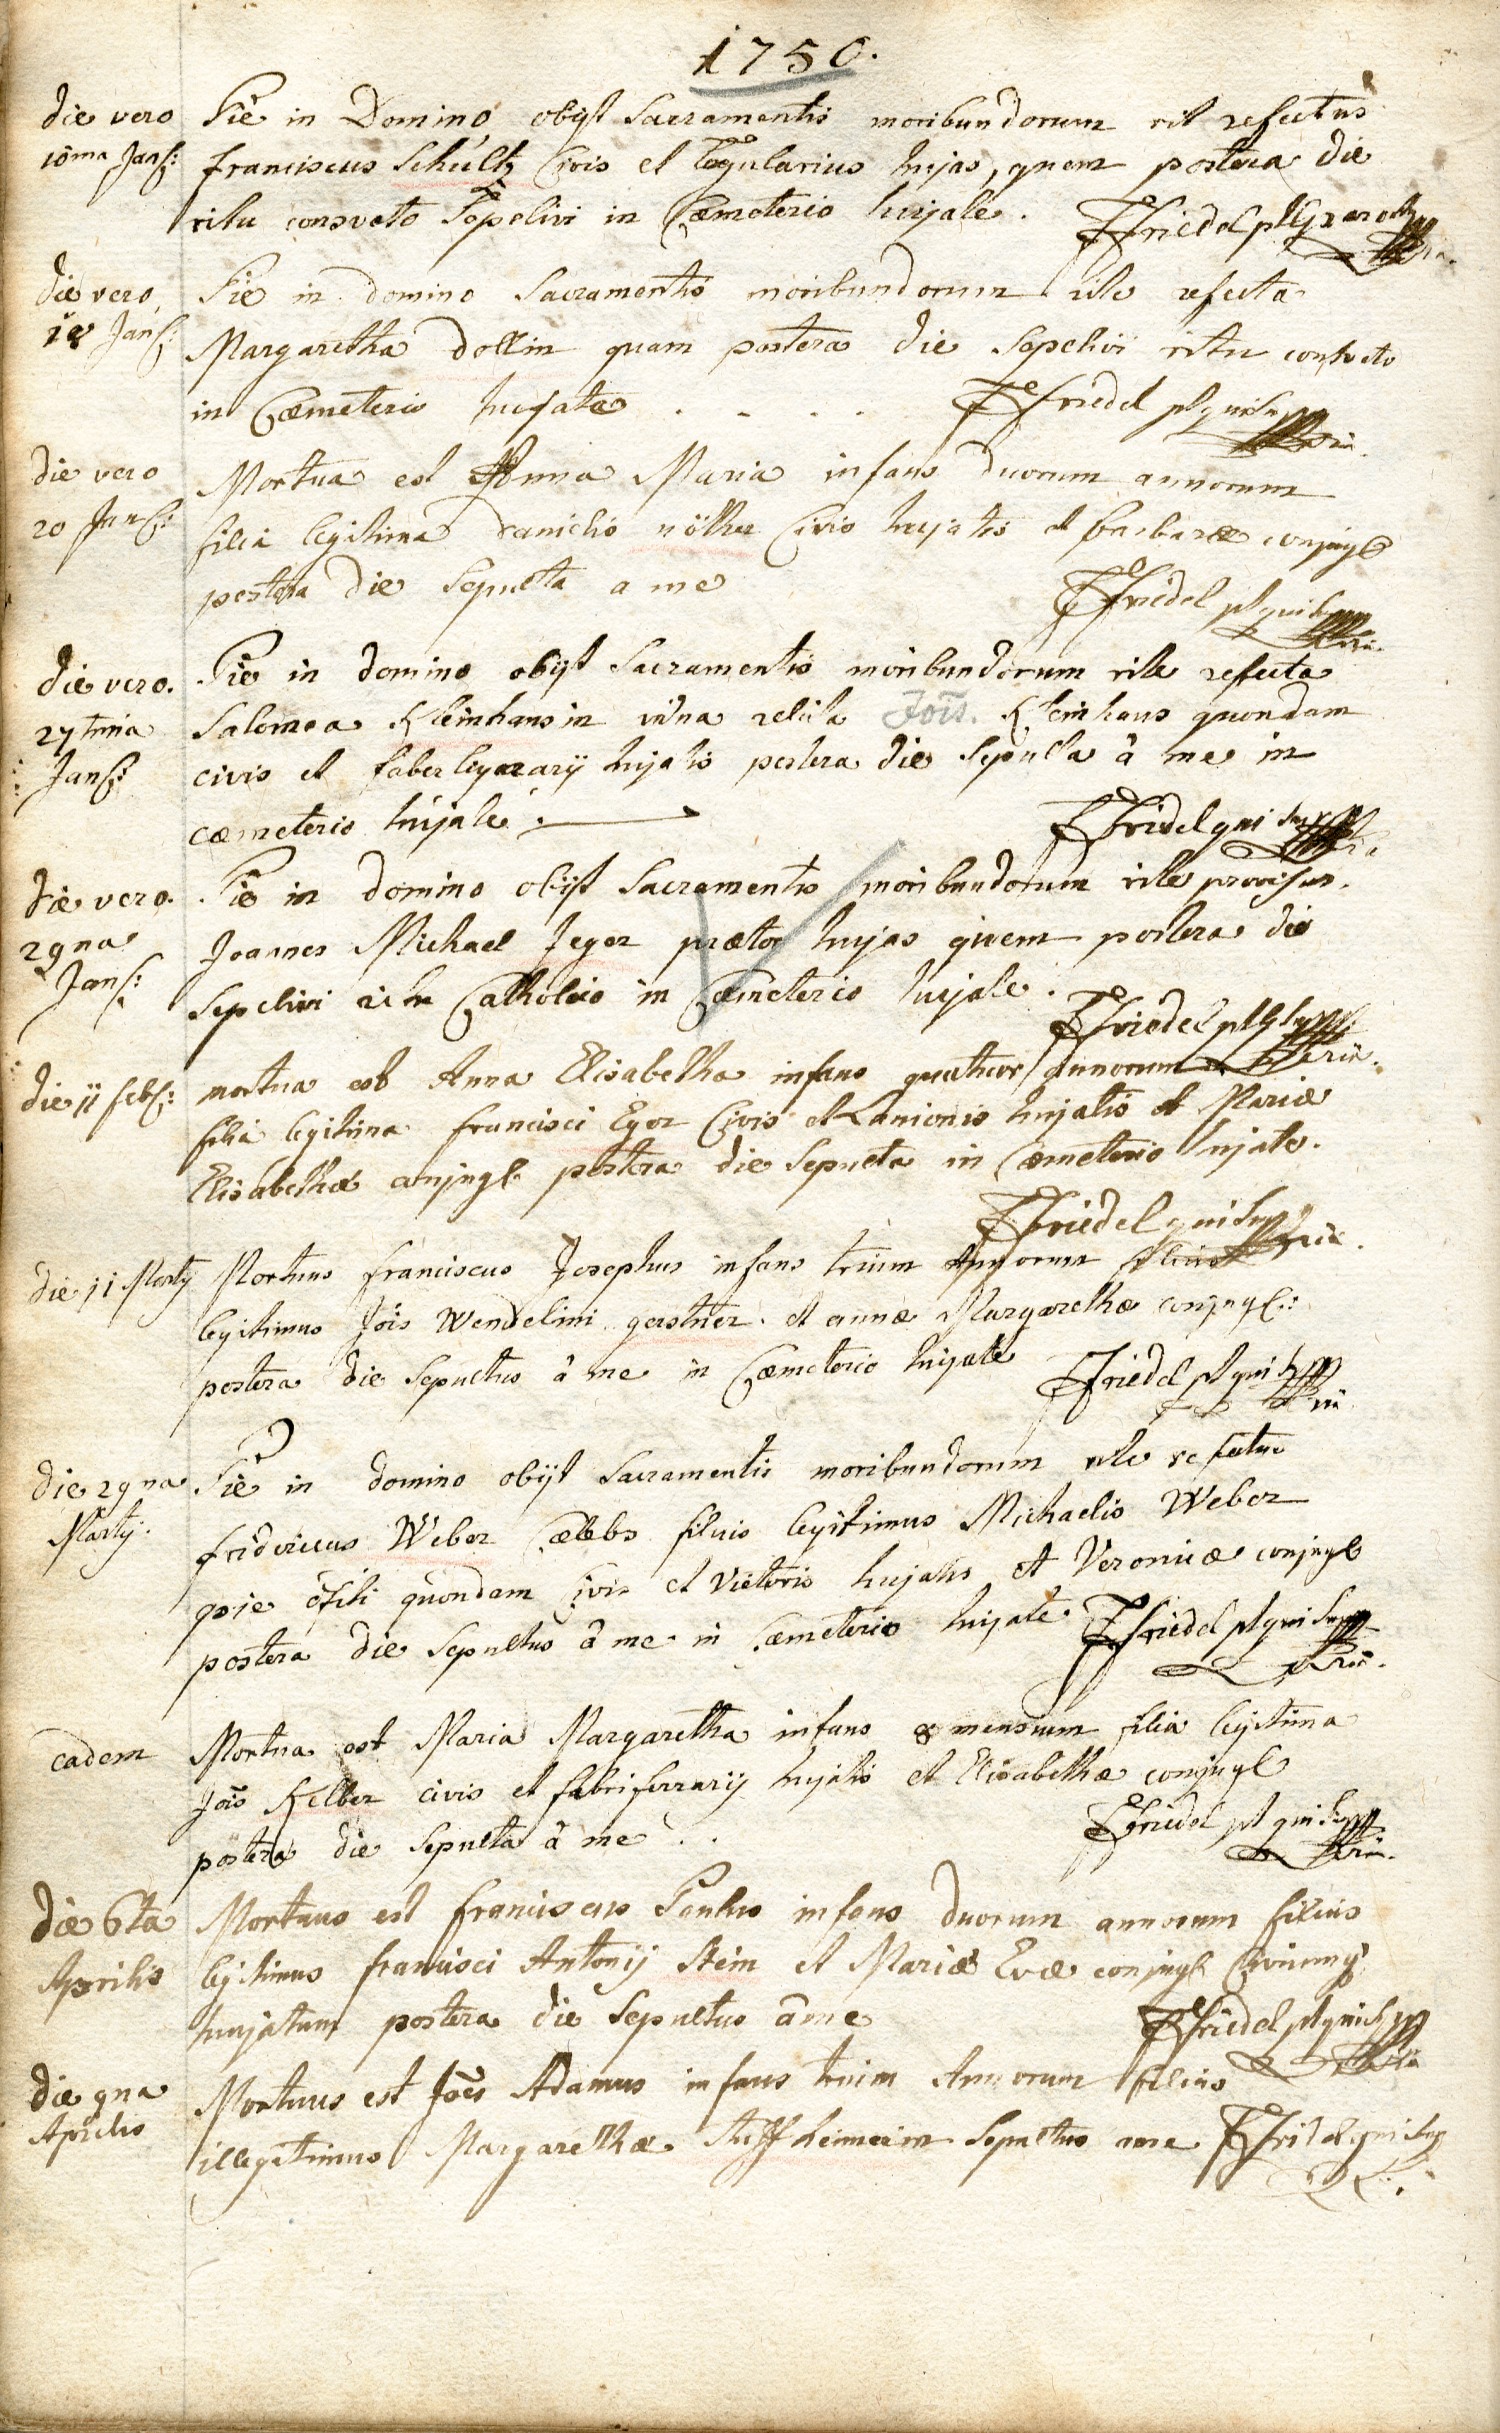 1750.
die vero Pie in Domino obijt Sacramentis moribundorum rit refectus
10ma Jan: franciscus Schultz Civis et Tegularius hujas, quem postera die
ritu consveto Sepelivi in Cæmeterio hujate. FFriedel
die vero Pie in domino Sacramentis moribundorum rite refecta
Jan: Margaretha dollin quam postera die sepelivi ritu consveto
in Cæmeterio hujate . - . . FFriedel pl qui
die vero Mortua est Anna Maria infans duorum annorum
20 Jan: filia legitima danielis nöther Civis hujatis et barbaræ conjugl
postera die Sepulta a me FFriedel pl qui
die vero. Pie in domino obijt Sacramentis moribundorum rite refecta
27tma Salomea Kleinhansin vidua relicta Jois. Kleinhans quondam
Jan: civis et faber hujatis postera die Sepulta â me in
cæmeterio hujate. FFridel qui
die vero. Pie in domino obijt Sacramentis moribundorum rite provisus.
29na Joannes Michael Jeger prætor hujas quem postera die
Jan: Sepelivi ritu Catholico in Cæmeterio hujate. FFriedel
die 11 feb: mortua est Anna Elisabetha infans quatuor annorum
filia legitima francisci Eger Civis et Lanionis hujatis et Mariæ
Elisabethæ conjugl postera die Sepulta in Cæmeterio hujate.
FFriedel qui
die 11 Martij Mortuus franciscus Josephus infans trium Annorum filius
legitimus Jois Wendelini gerstner. et annæ Margarethæ conjugl:
postera die Sepultus â me in Cæmeterio hujate FFriedel pl qui
die 29na Pie in domino obijt Sacramentis moribundorum rite refectus
Martij. fridericus Weber Cælebs filius legitimus Michaelis Weber
quondam Civis et Vietoris hujatis et Veronicæ conjugl
postera die Sepultus â me in Cæmeterio hujate FFriedel pl qui
eadem Mortua est Maria Margaretha infans 8 mensium filia legitima
Jois Kelber civis et fabri ferrarij hujatis et Elisabethæ conjugl
postera die Sepulta â me . . FFriedel pl qui
die 6ta Mortuus est franciscus Paulus infans duorum annorum filius
Aprilis legitimus francisci Antonij Stein et Mariæ Evæ conjugl Civium
hujatum postera die Sepultus â me FFriedel pl qui
die 9na Mortuus est Jois Adamus infans trium Annorum filius
Aprilis illegitimus Margarethæ Sepultus a me FFridel qui